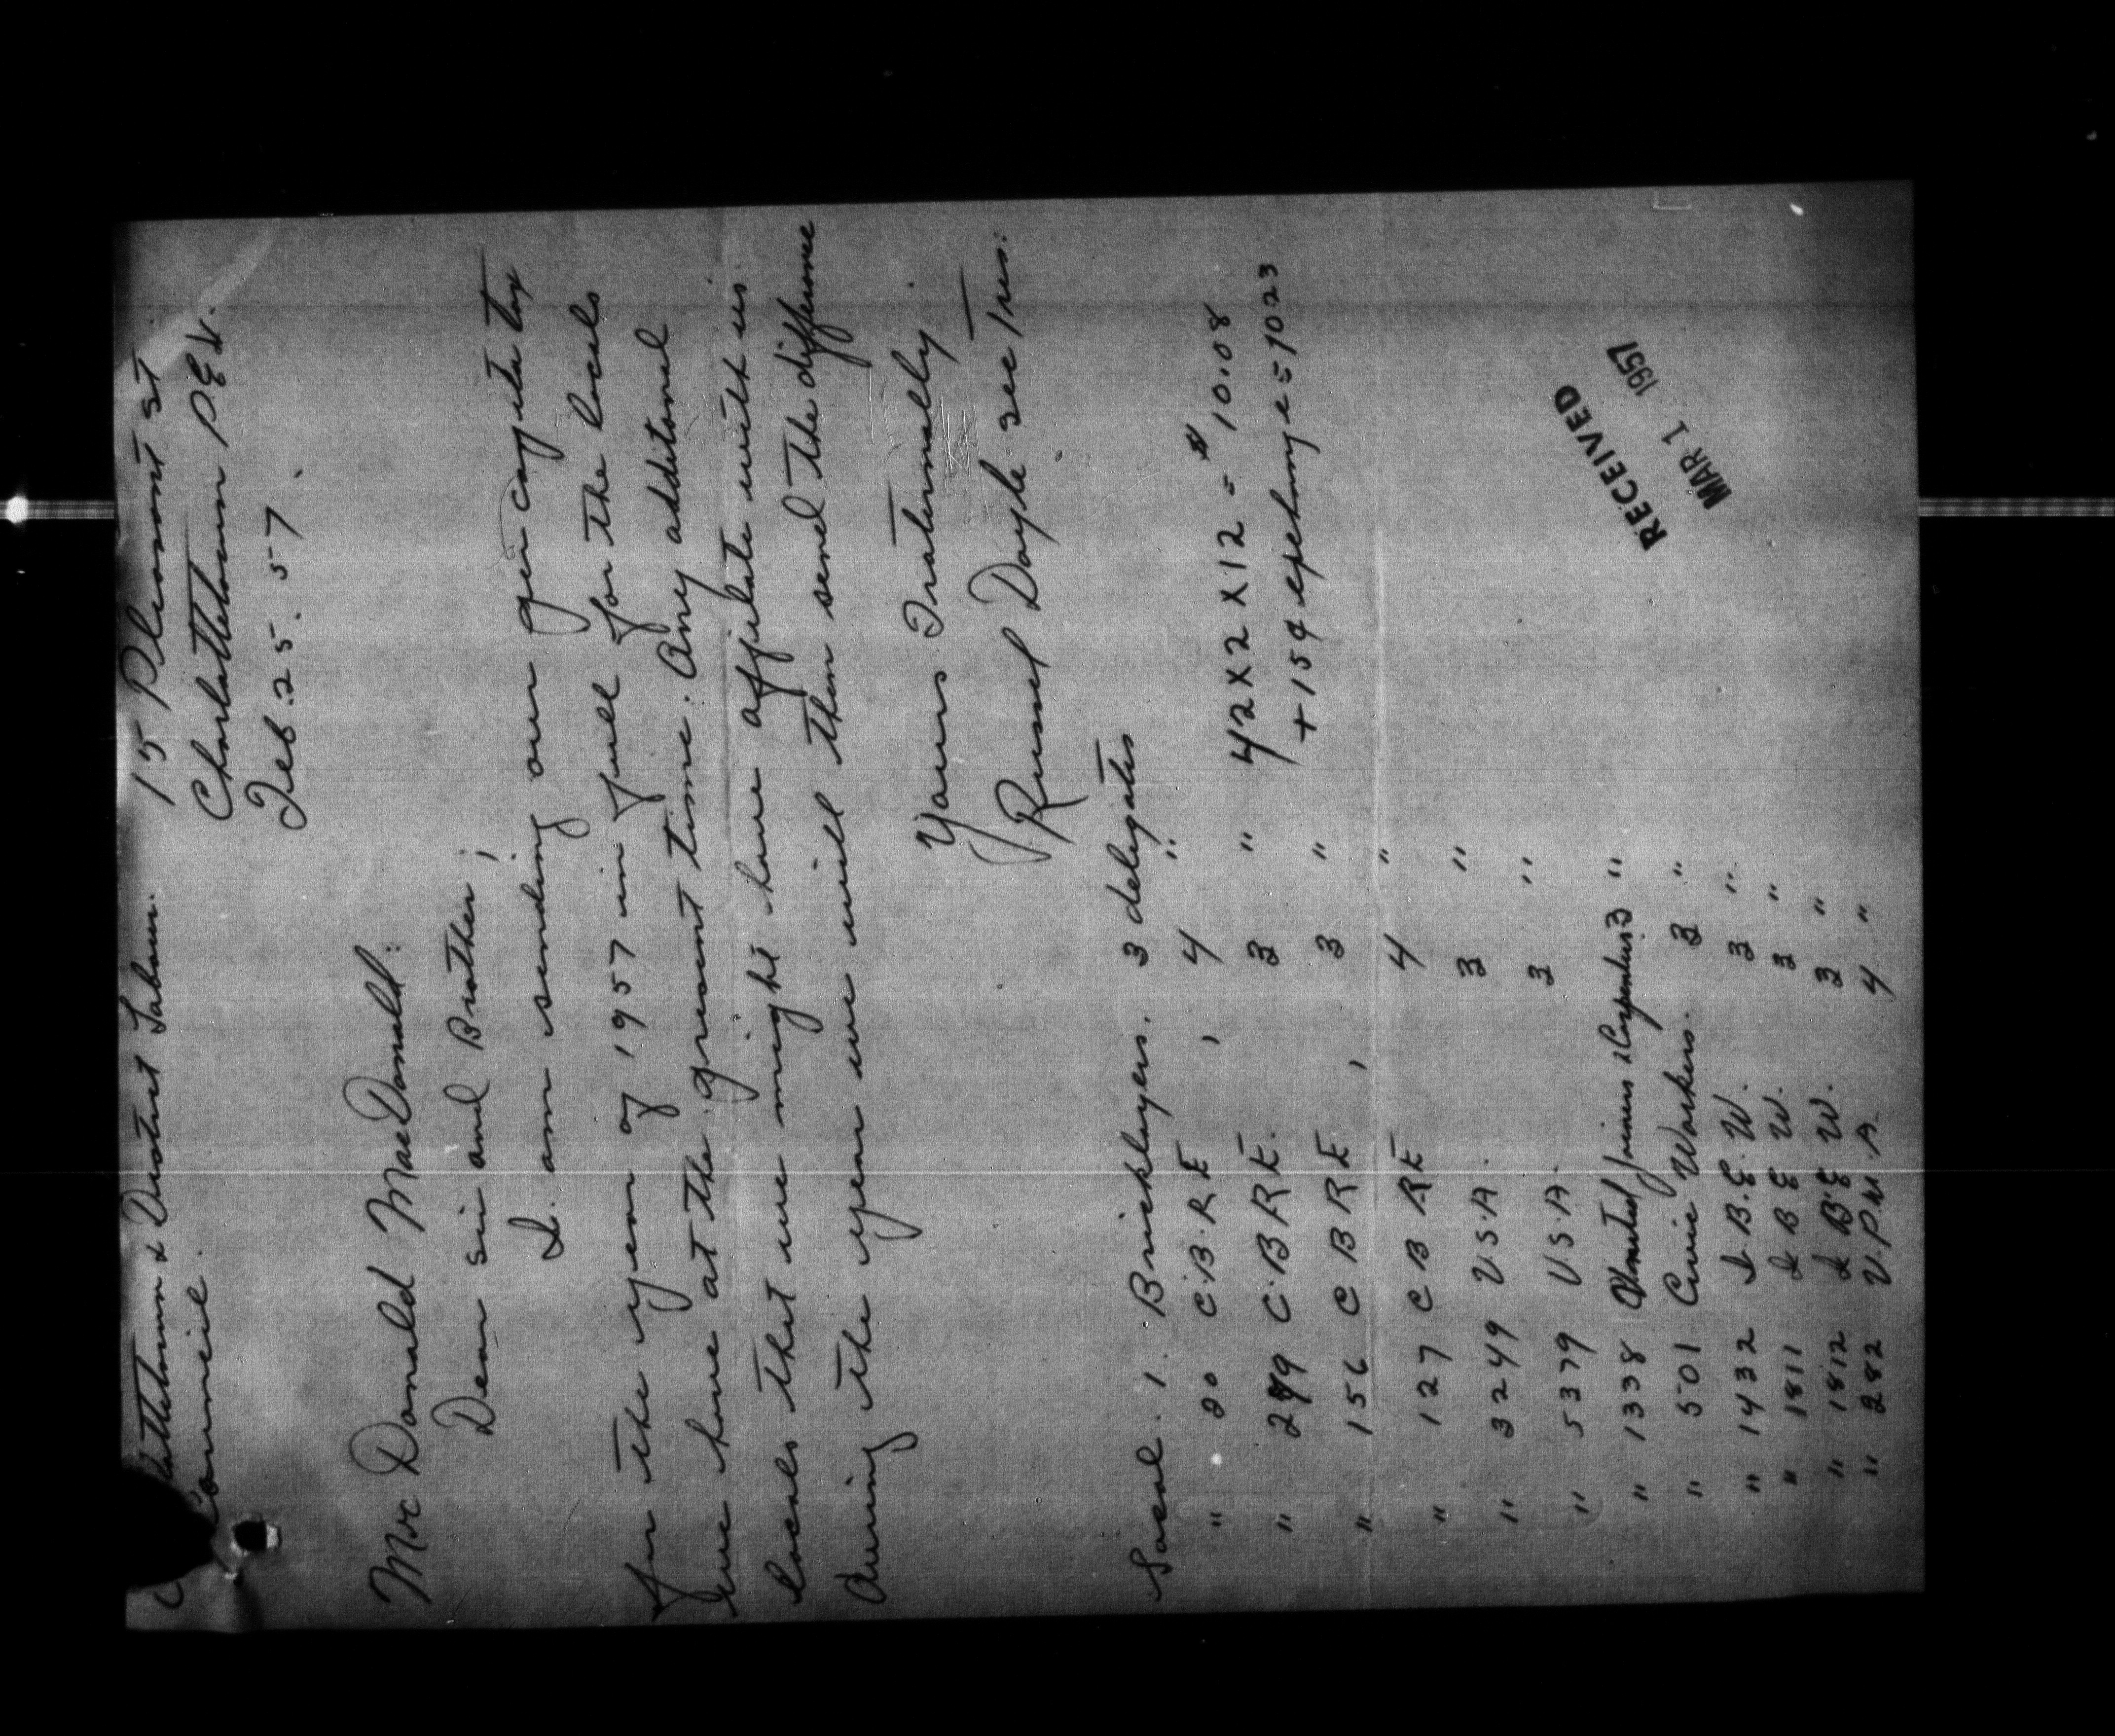 & District Labour. 15 Pleasant St
Council. Charlottetown P.E.I.
Feb. 25. 57.
Mr Donald MacDonald:
Dear sir and Brother;
I am sending our per capita tax
for the year of 1957 in full for the locals
we have at the present time. Any additonal
locals that we might have affilate with us
during the year we will then send the difference
Yours Fraternally
Russel Doyle sec Tres.
Local. 1. Bricklayers. 3 delegates
" 20 C.B.R.E , 4 "
" 299 C.B.R.E. 3 " 42 X 2 X 12 = $10.08
" 156 C B R E , 3 " + 15¢ exchange = 10 23
" 127 C B R E 4 "
" 3249 U.S.A. 3 "
" 5379 U.S.A. 3 "
" 1338 United Joiners & Carpenters 3 "
" 501 Civic Workers. 3 "
" 1432 I.B.E.W. 3 "
" 1811 I B E W. 3 "
" 1812 I B E W. 3 "
" 282 U.P.W.A. 4 "
RECEIVED
MAR 1 1957